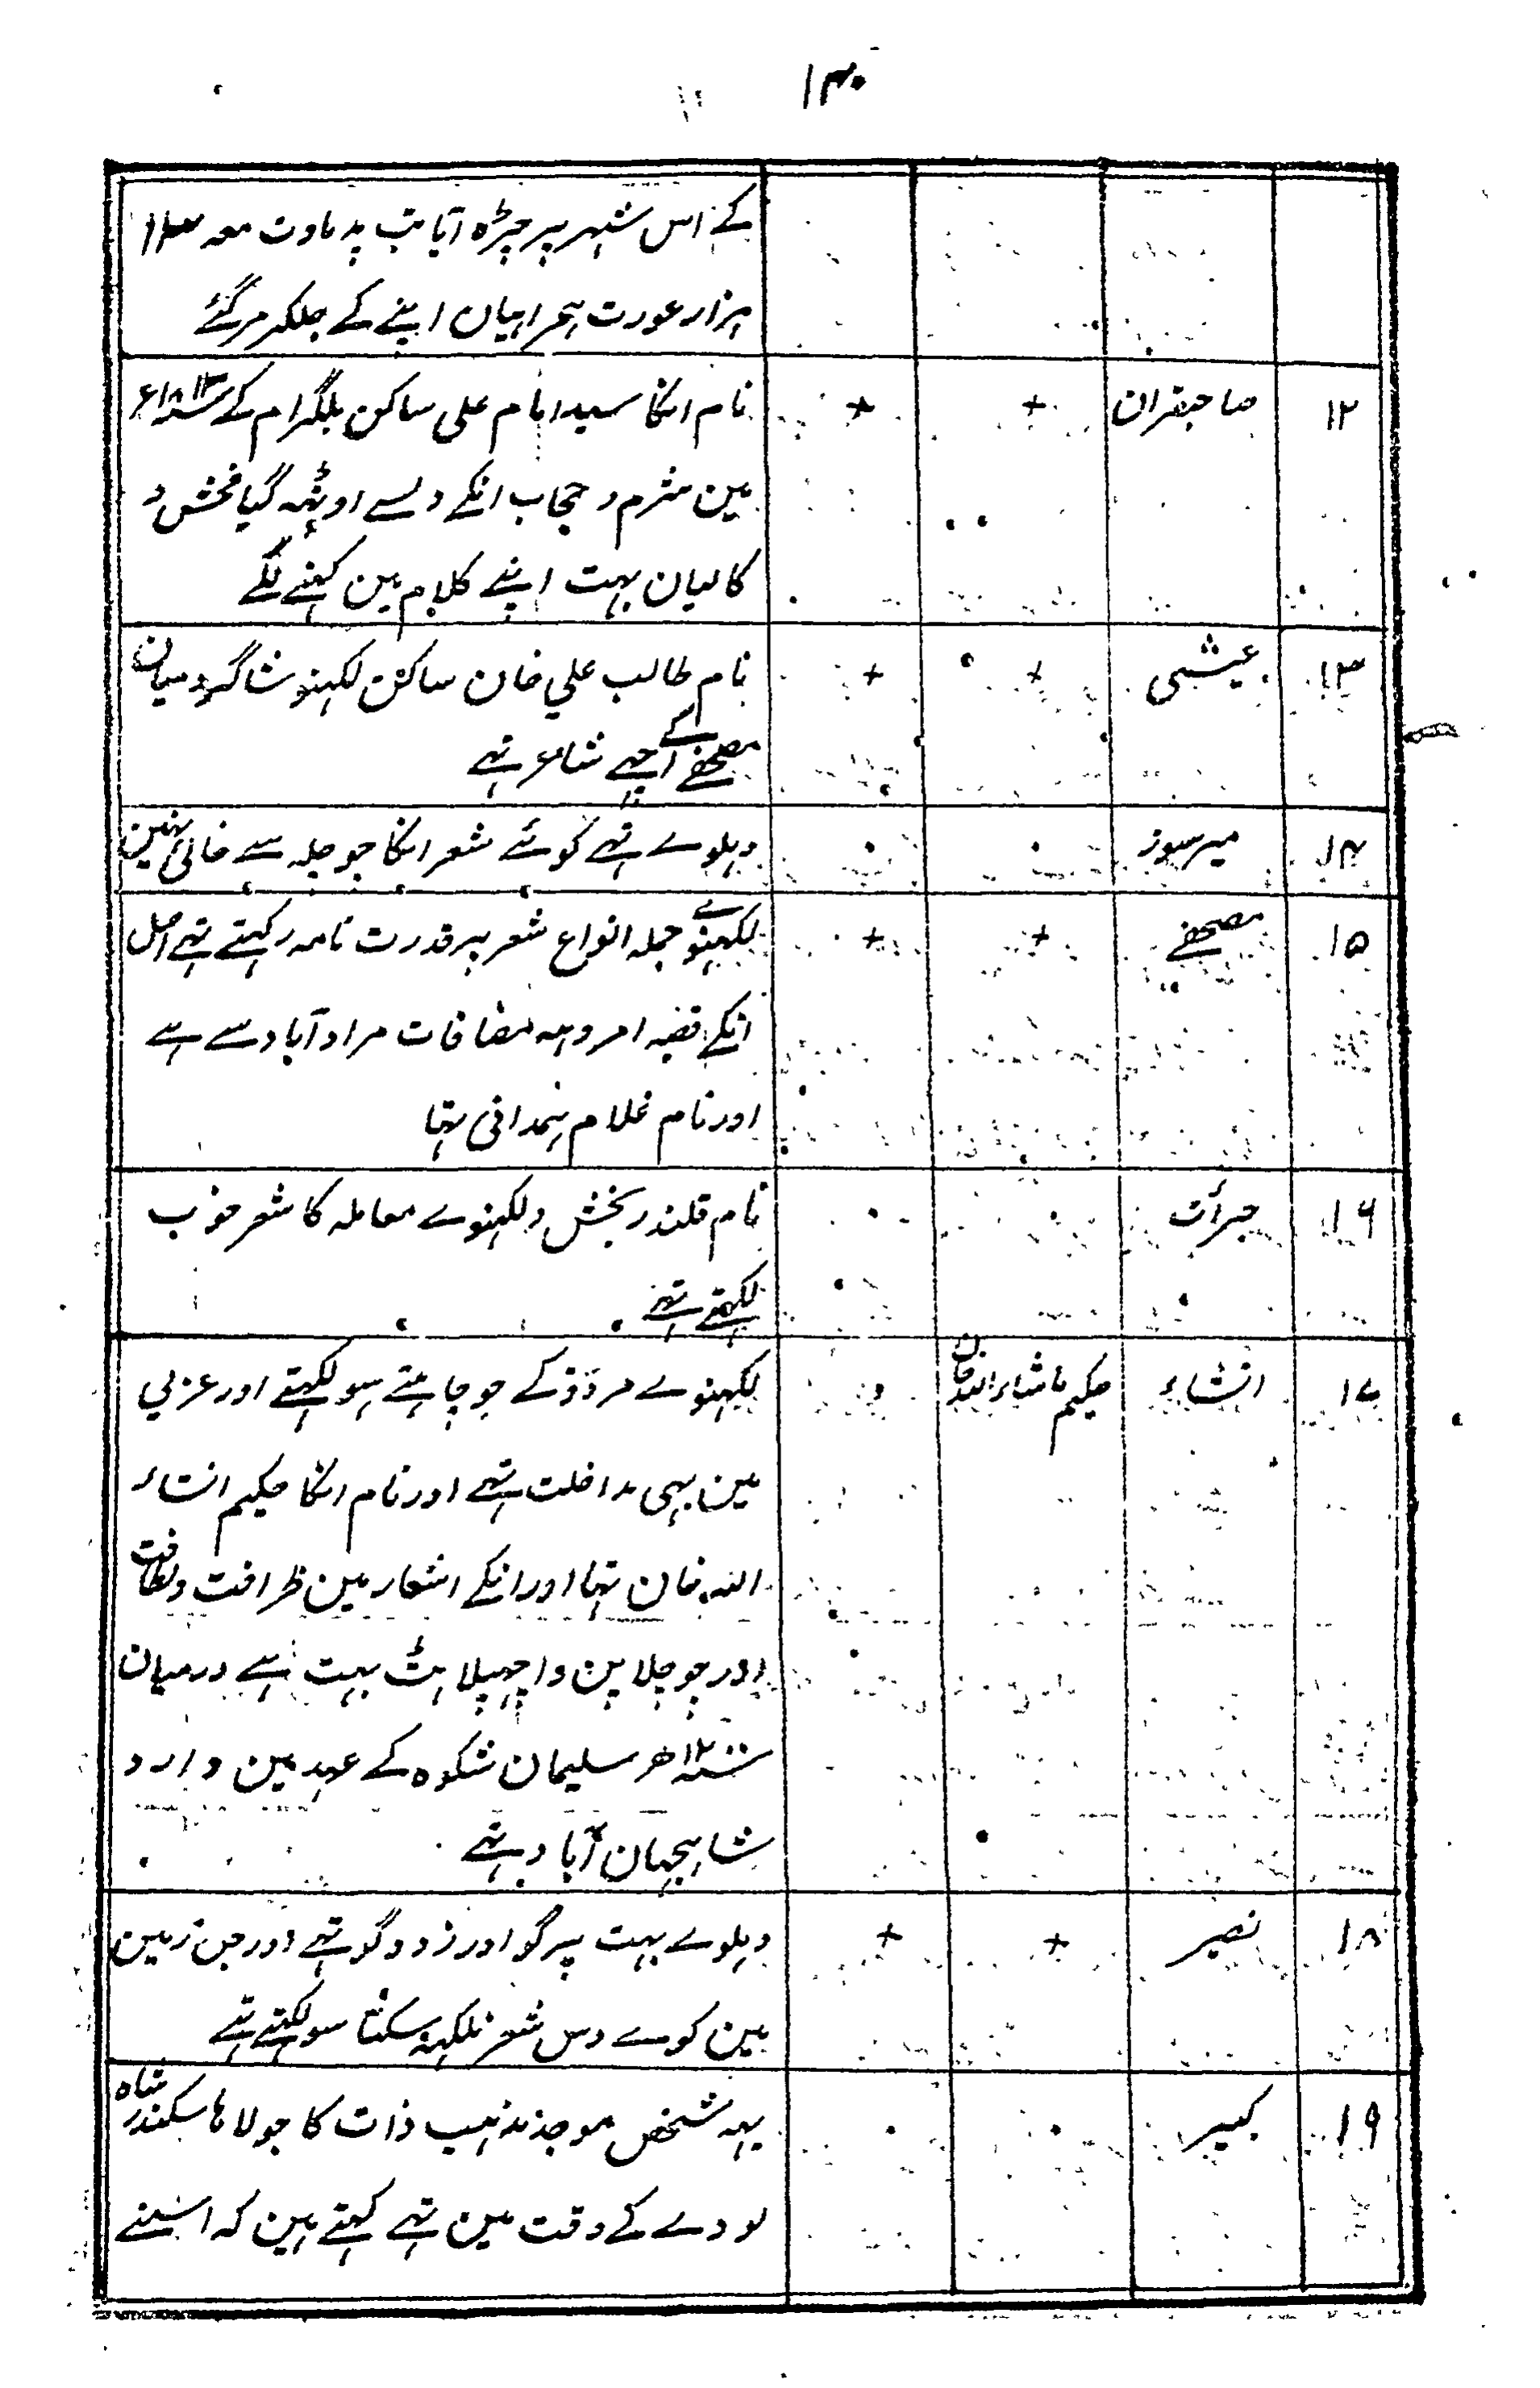 ۱۴۰
کے اس شہر پر چڑہ آیا تب پدماوت معہ ۱۳
ہزار عورت ہمراہیان اپنے کے جلکر مرگئے
۱۲ صاحبقران + + نام انکا سید امام علی ساکن بلگرام کے سنہ ۱۸۱۳ء
مین شرم و حجاب انکے دلسے اوٹہہ گیا فحش و
گالیان بہت اپنے کلام مین کہنے لگے
۱۳ عیشی + + نام طالب علي خان ساکن لکہنو شاگرد میان
مصحفے کے اچہے شاعر تہے
۱۴ میر سوز دہلوے تہے کوئے شعر انکا چوچلہ سے خالی نہین
۱۵ مصحفے + + لکہنوے جملہ انواع شعر پر قدرت تامہ رکہتے تہے اصل
انکے قصبہ امروہہ مضافات مرادآباد سے ہے
اور نام غلام ہمدانی تہا
۱۶ جرأت نام قلندر بخش و لکہنوے معاملہ کا شعر خوب
لکہتے تہے
۱۷ انشاء حکیم ماشاء اللہ خان لکہنوے ہر ڈول کے جو چاہتے سو لکہتے اور عربی
مین بہی مداخلت تہے اور نام انکا حکیم انشاء
اللہ خان تہا اور انکے اشعار مین ظرافت و لطافت
اور چوچلا پن و اچپلاہٹ بہت ہے درمیان
سنہ ۱۲۰۰ھ سلیمان شکوہ کے عہد مین وارد
شاہجہان آباد تہے
۱۸ نصیر + + دہلوے بہت پرگو اور زودگو تہے اور جس زمین
مین کوے دس شعر نلکہہ سکتا سو لکہتے تہے
۱۹ کبیر یہہ شخص موجد مذہب ذات کا جولاہا سکندر شاہ
لودے کے وقت مین تہے کہتے ہین کہ اسنے